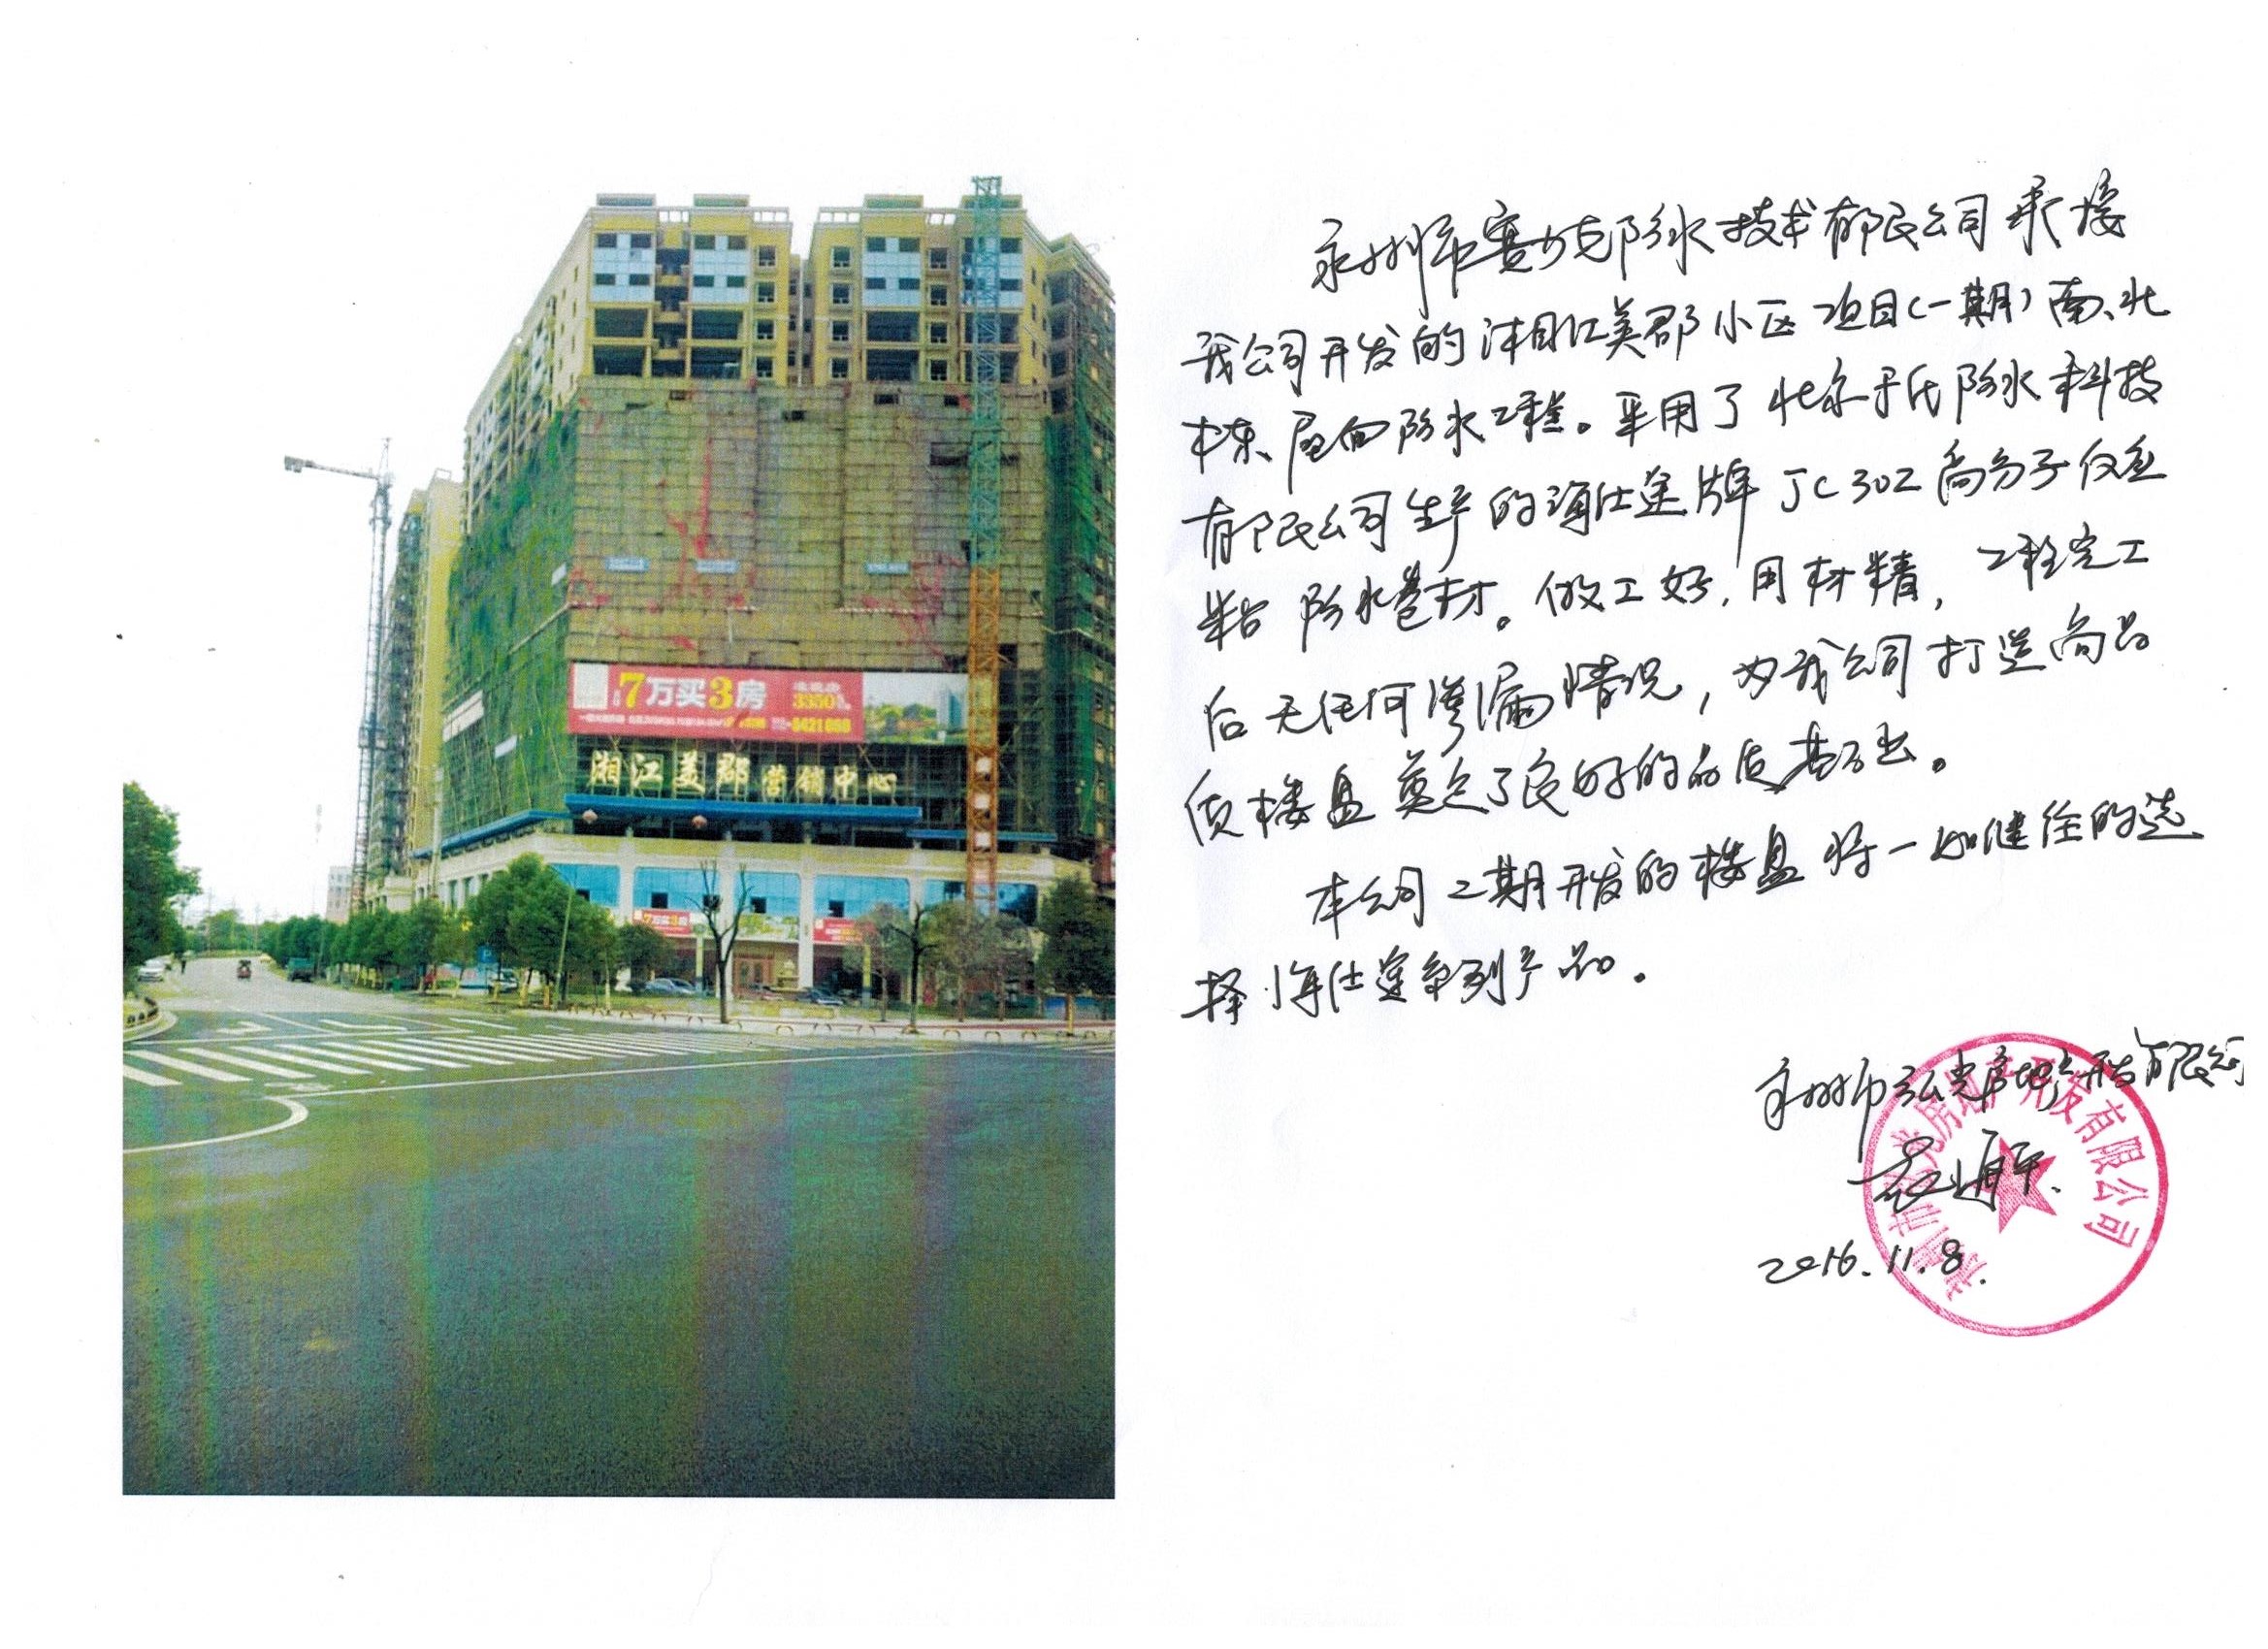 7万买3房
3350
8421888
湘江美郡营销中心
7万买3房
永州市赛力克防水技术有限公司承接
我公司开发的湘江美郡小区项目(一期)南、北
栋、屋面防水工程。采用了北京宇氏防水科技
有限公司生产的海仕途牌JC302高分子仅应
粘防水卷材。做工好,用材精,工程完工
后无任何渗漏情况,为我公司打造高品
质楼盘奠定了良好的品质基础。
本公司二期开发的楼盘将一如继往的选
择海仕途系列产品。
永州市弘光房地产开发有限公司
2016.11.8.
永州市弘光房地产开发有限公司